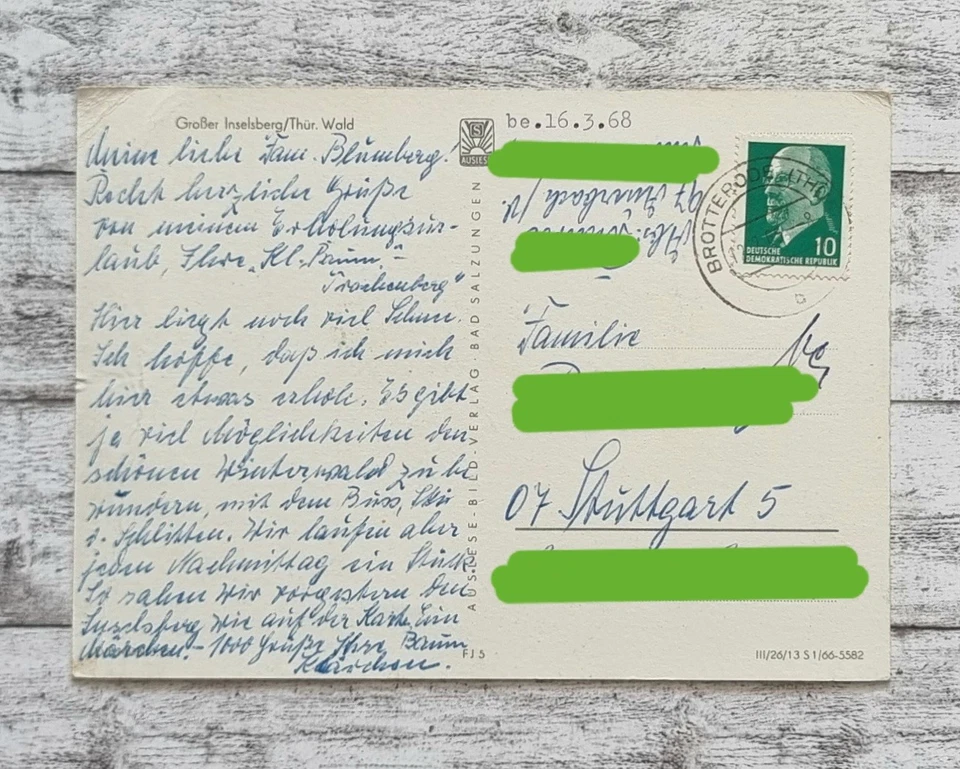 Großer Inselsberg/Thür. Wald
be.16.3.68
Meine liebe Fam. Blumberg!
Recht herzliche Grüße
von meinem Erholungsur-
laub, Ihre „Kl. Baum, –
Drachenberg"
Hier liegt noch viel Schnee.
Ich hoffe, daß ich mich
hier etwas erhole. Es gibt
ja viel Möglichkeiten den
schönen Winterwald zu be
wundern, mit dem Bus, Ski
u. Schlitten. Wir laufen aber
jeden Nachmittag ein Stück
So sahen wir vorgestern den
Inselsberg wie auf der Karte. Ein
Märchen! – 1000 Grüße Ihre Baum
AUSLESE
AUSLESE-BILD-VERLAG BAD SALZUNGEN
FJ 5
97 Auerbach/V.
Abs.
BROTTERODE
DEUTSCHE
DEMOKRATISCHE REPUBLIK
10
b
Familie
07 Stuttgart 5
III/26/13 S 1/66-5582